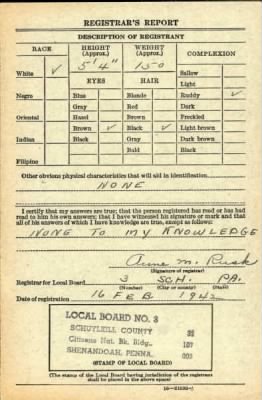 REGISTRAR'S REPORT
DESCRIPTION OF REGISTRANT
RACE HEIGHT (Approx.) WEIGHT (Approx.) COMPLEXION
White ✓ 5' 4" 150 Sallow
EYES HAIR Light
Negro Blue Blonde Ruddy ✓
Gray Red Dark
Oriental Hazel Brown Freckled
Brown ✓ Black ✓ Light brown
Indian Black Gray Dark brown
Bald Black
Filipino
Other obvious physical characteristics that will aid in identification
NONE
I certify that my answers are true; that the person registered has read or has had
read to him his own answers; that I have witnessed his signature or mark and that
all of his answers of which I have knowledge are true, except as follows:
NONE TO MY KNOWLEDGE
M. Rusk
(Signature of registrar)
Registrar for Local Board 3 SCH. PA.
(Number) (City or county) (State)
Date of registration 16 FEB 1942
LOCAL BOARD NO. 3
SCHUYLKILL COUNTY
Citizens Nat. Bk. Bldg. 107
SHENANDOAH, PENNA. 003
(STAMP OF LOCAL BOARD)
(The stamp of the Local Board having jurisdiction of the registrant
shall be placed in the above space.)